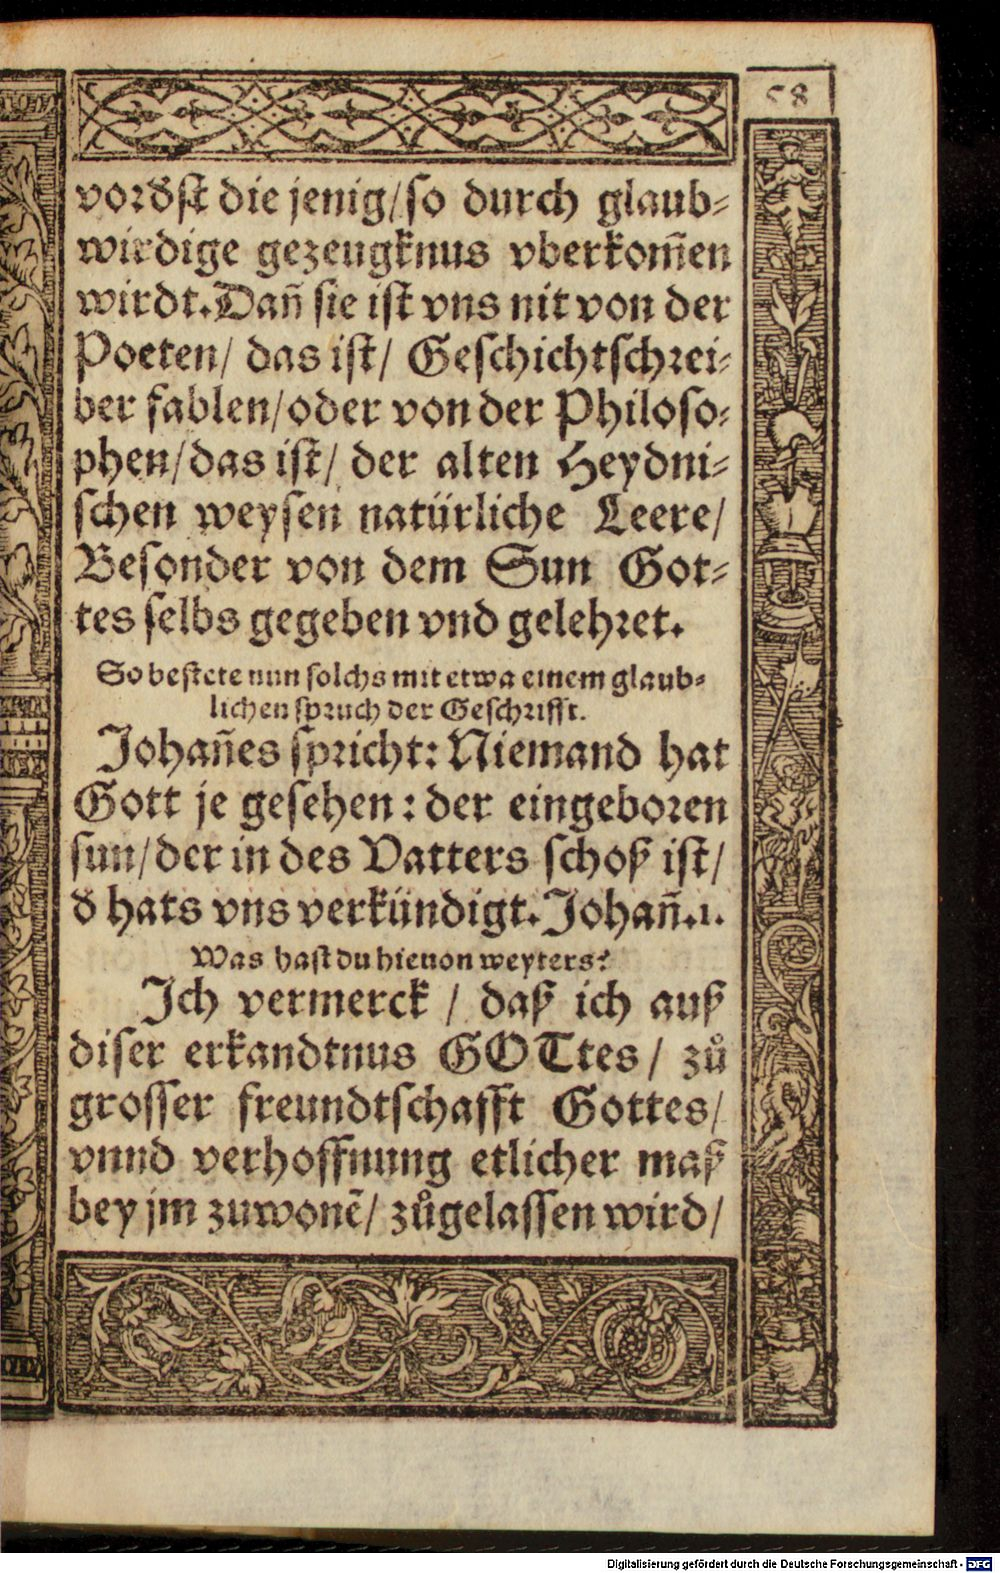 58
vorđst die jenig/so durch glaub⸗
wirdige gezeugknus vberkom̃en
wirdt. Dañ sie ist vns nit von der
Poeten/ das ist/ Geschichtschrei⸗
ber fablen/oder von der Philoso⸗
phen/das ist/ der alten Heydni⸗
schen weysen natürliche Leere/
Besonder von dem Sun Got⸗
tes selbs gegeben vnd gelehret.
So bestete nun solchs mit etwa einem glaub⸗
lichen spruch der Geschrifft.
Johañes spricht: Niemand hat
Gott je gesehen: der eingeboren
sun/der in des Vatters schoß ist/
đ hats vns verkündigt. Johañ.1.
Was hast du hieuon weyters?
Ich vermerck / daß ich auß
diser erkandtnus GOTtes/ zů
grosser freundtschafft Gottes/
vnnd verhoffnung etlicher maß
bey jm zuwonē/ zůgelassen wird/
Digitalisierung gefördert durch die Deutsche Forschungsgemeinschaft - DFG